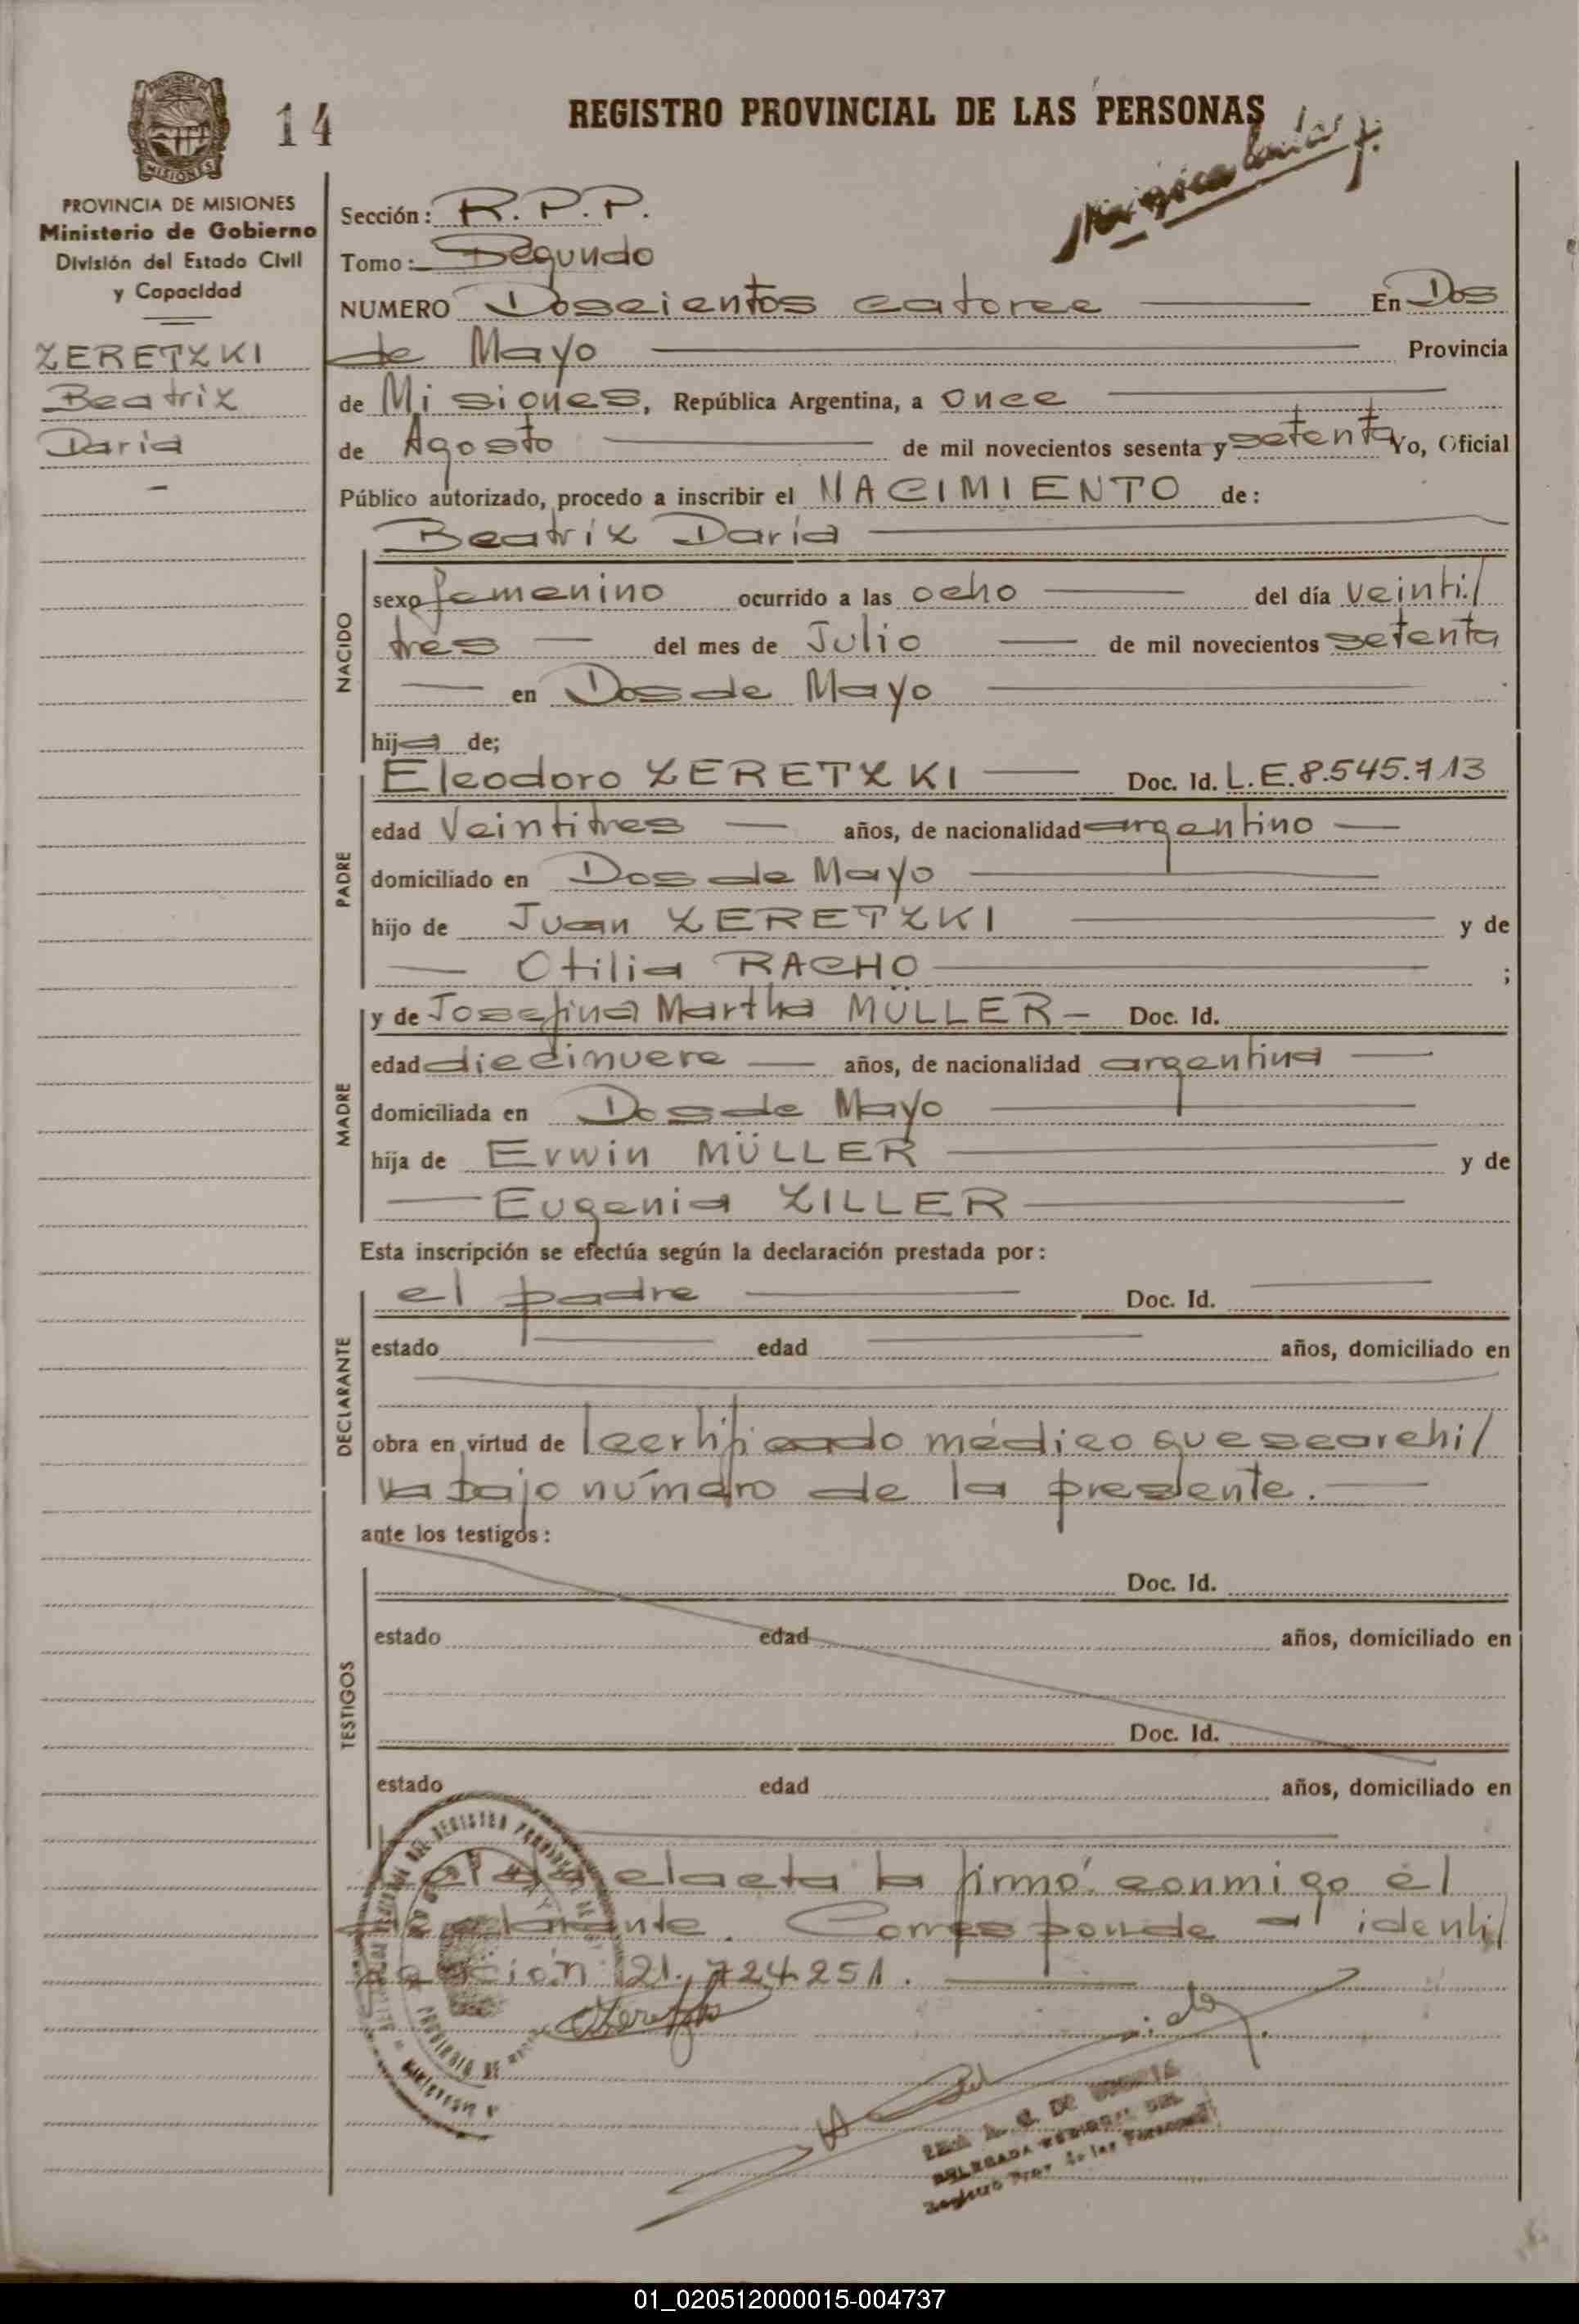 14
REGISTRO PROVINCIAL DE LAS PERSONAS
PROVINCIA DE MISIONES
Ministerio de Gobierno
División del Estado Civil
y Capacidad
ZERETZKI
Beatriz
Daria
Sección: R.P.P.
Tomo: Segundo
NUMERO Doscientos catorce En Dos
de Mayo Provincia
de Misiones, República Argentina, a once
de Agosto de mil novecientos sesenta y setenta Yo, Oficial
Público autorizado, procedo a inscribir el NACIMIENTO de:
Beatriz Daria
NACIDO
sexo femenino ocurrido a las ocho del día veinti/
tres del mes de Julio de mil novecientos setenta
en Dos de Mayo
hija de;
PADRE
Eleodoro ZERETZKI Doc. Id. L.E.8.545.713
edad Veintitres años, de nacionalidad argentino
domiciliado en Dos de Mayo
hijo de Juan ZERETZKI y de
Otilia RACHO ;
MADRE
y de Josefina Martha MÜLLER Doc. Id.
edad diecinueve años, de nacionalidad argentina
domiciliada en Dos de Mayo
hija de Erwin MÜLLER y de
Eugenia ZILLER
Esta inscripción se efectúa según la declaración prestada por:
DECLARANTE
el padre Doc. Id.
estado edad años, domiciliado en
obra en virtud de certificado médico que se archi/
va bajo número de la presente.
ante los testigos:
TESTIGOS
Doc. Id.
estado edad años, domiciliado en
Doc. Id.
estado edad años, domiciliado en
el acta la firmó conmigo el
Corresponde a identi/
21.724.251.
DELEGADA
Registro Prov. de las Personas
01_020512000015-004737